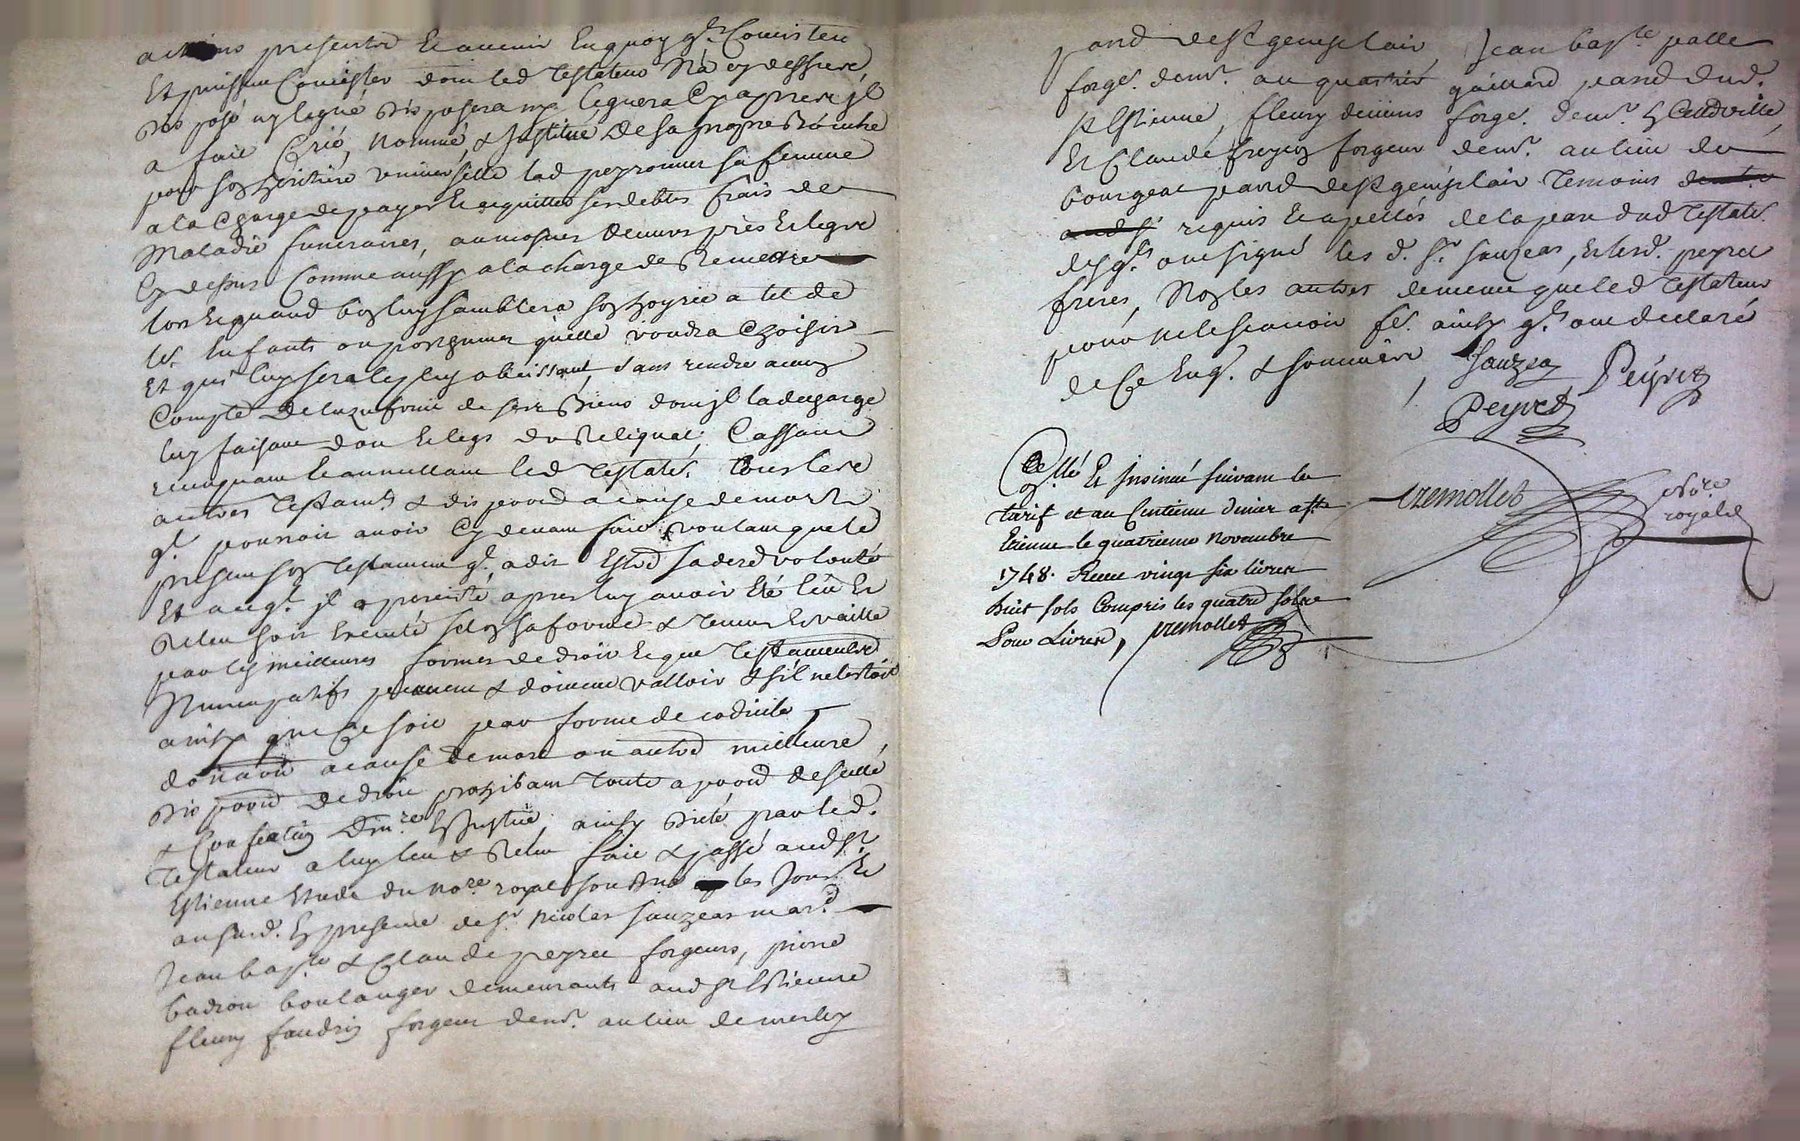 actions presents et avenir en quoy q.^l Consistent
et puissent Consister dont led testateur n'a cy dessus
disposé ny legué disposera ny leguera Cy apres il
a fait Créé, nommé, & Institué de sa propre bouche
pour son heritiere universelle lad peyronner sa femme
a la charge de payer et acquitter ses debtes frais de
maladie funeraires, aumosnes œuvres pies et legs
Cy dessus Comme aussy a la charge de Remettre
lors et quand bon luy samblera son hoyrie a tel de
les Enfants ou posthumes qu'elle voudra Choisir
et qui luy sera le plus obeissant, sans rendre aucun
Compte de luzufruit de ses Biens dont il la decharge
luy faisant don et legs du Reliquat; Cassant
revoquant et annullant led testat.^r tous les
autres testamts & dispoond a cause de mort
q.^l pourroit avoir Cy devant fait voulant que le
present son testament q.^l a dit Estre sa dere volonté
et auq.^l il a persisté apres luy avoir été leu et
Releu soit executé selon sa forme & teneur et vaille
par les meilleures formes de droit et que testaments
Nuncupatifs peuvent & doivent valloir & s'il ne l'estoit
ainsy que Ce soit par forme de codicile
donation a cause de mort ou autre meilleure
dispoond de droit prohibant toute apoond de scellé
& Confection dinv.^re Et Justice, ainsy dicté par led.
Testateur a luy leu & Releu fait & passé aud S.^t
Estienne etude du no.^re royal sousné les Jour et
an susd. En presence de S.^r nicolas sauzeas mar.^d
Jean bap.^te & Claude peyret forgeurs, pierre
badion boulanger demeurants aud St Estienne
fleury faudrin forgeur demr. au lieu de merley
parr.^d de St genist lair Jean bap.^te palle
forg.^r demr. au quartier gaillard par.^d dud.
St Estienne, fleury forg.^r demr. En Cettd ville,
et Claude freycon forgeur demr. au lieu de
bourgeat par.^d de St genist lair temoins
requis et apellés de la part dud testat.^r
desq.^ls ont signé les d. S.^r sauzeas, et lesd. peyret
freres, Non les autres de meme que led testateur
pour ne le scavoir f.^e ainsy q.^ls ont declaré
de Ce Enq. & sommés
Sauzea Peyret
Peyret
Con.^llé Et Insinué suivant le
tarif et au Centieme denier a St
Etienne le quatrieme Novembre
1748. Receu vingt six livres
huit sols Compris les quatre sols
Pour Livres, tremollet
tremollet
no.re
royal